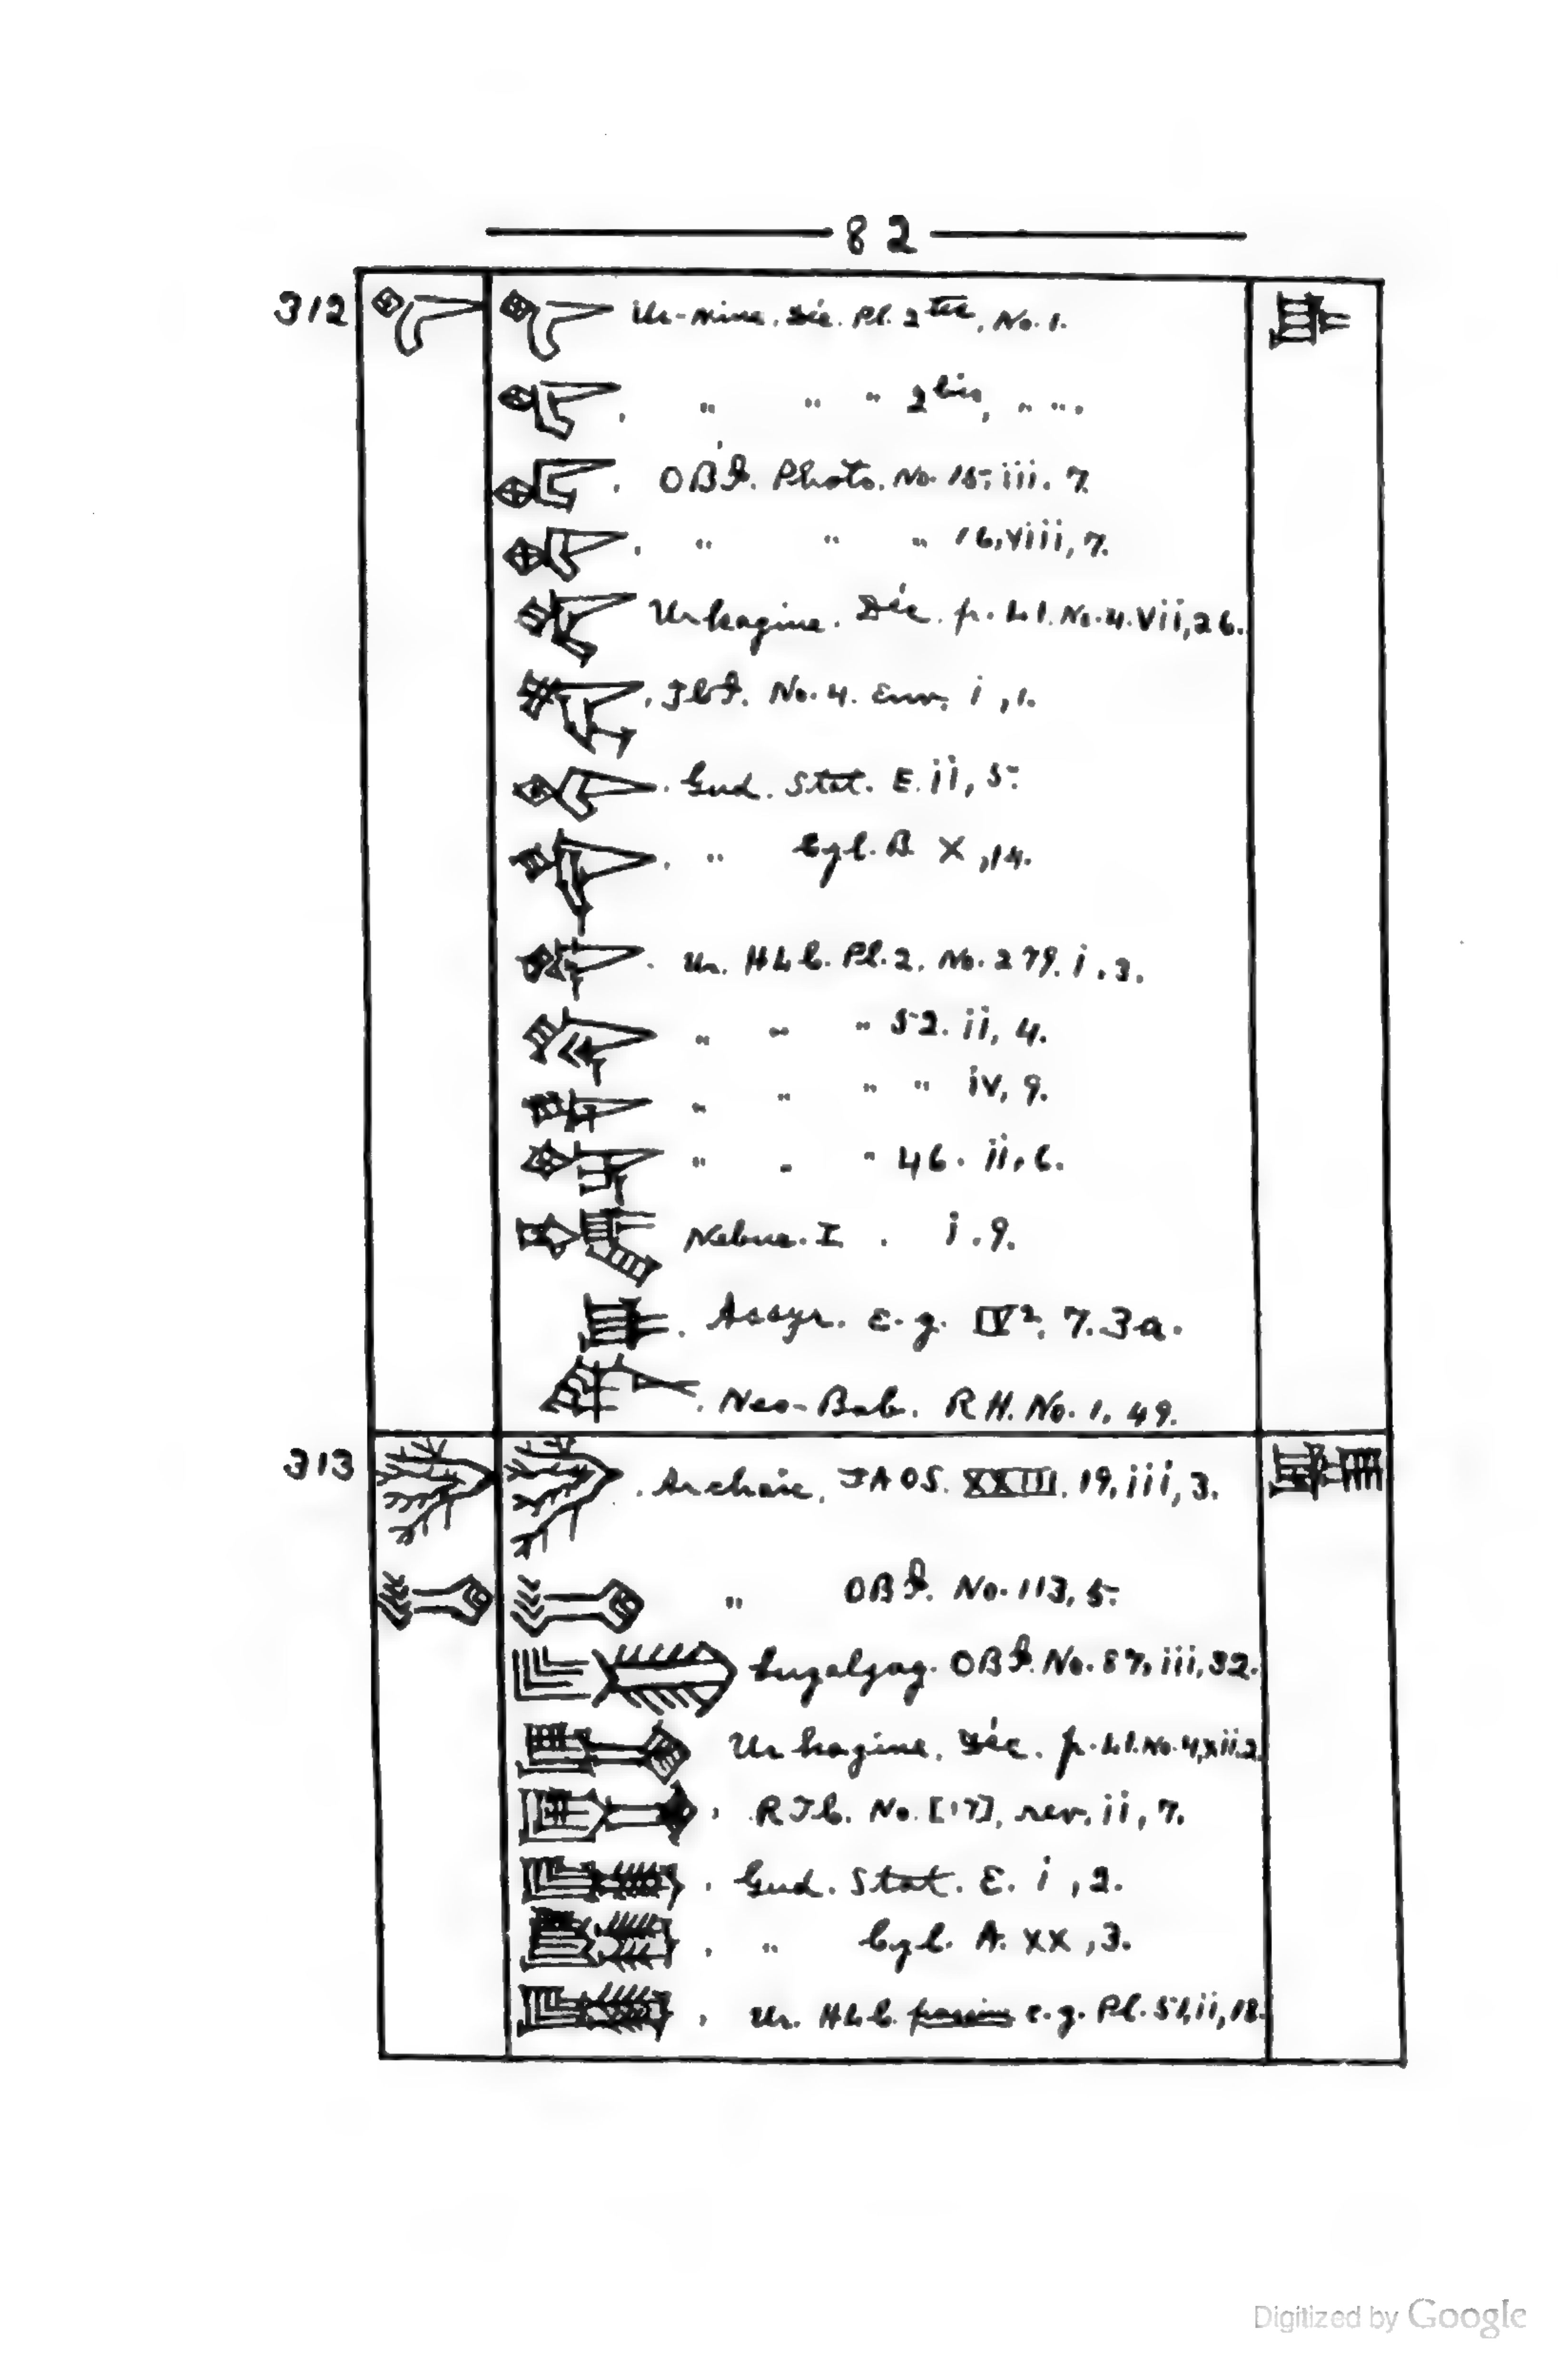 82
312 Ur-Nina. Déc. Pl. 2ter, No. 1.
" " " 2bis, " ".
OBI. Photo. No. 15, iii. 7.
" " " 16, viii, 7.
Urkagina. Déc. p. LI. No. 4. vii, 26.
No. 4. Env. i, 1.
Gud. Stat. E. ii, 5.
" Cyl. B X, 14.
Ur. HLC. Pl. 2, No. 279. i, 3.
" " " 52. ii, 4.
" " " " iv, 9.
" " " 46. ii, 6.
Nebuc. I. i. 9.
Assyr. e.g. IV², 7. 3a.
Neo-Bab. RH. No. 1, 49.
313 Archaic, JAOS. XXIII. 19, iii, 3.
" OBI. No. 113, 5.
Lugalzag. OBI. No. 87, iii, 32.
Urkagina, Déc. p. LI. No. 4, xii, 2
RTC. No. [17], rev. ii, 7.
Gud. Stat. E. i, 2.
" Cyl. A. XX, 3.
Ur. HLC. e.g. Pl. 51, ii, 18.
Digitized by Google